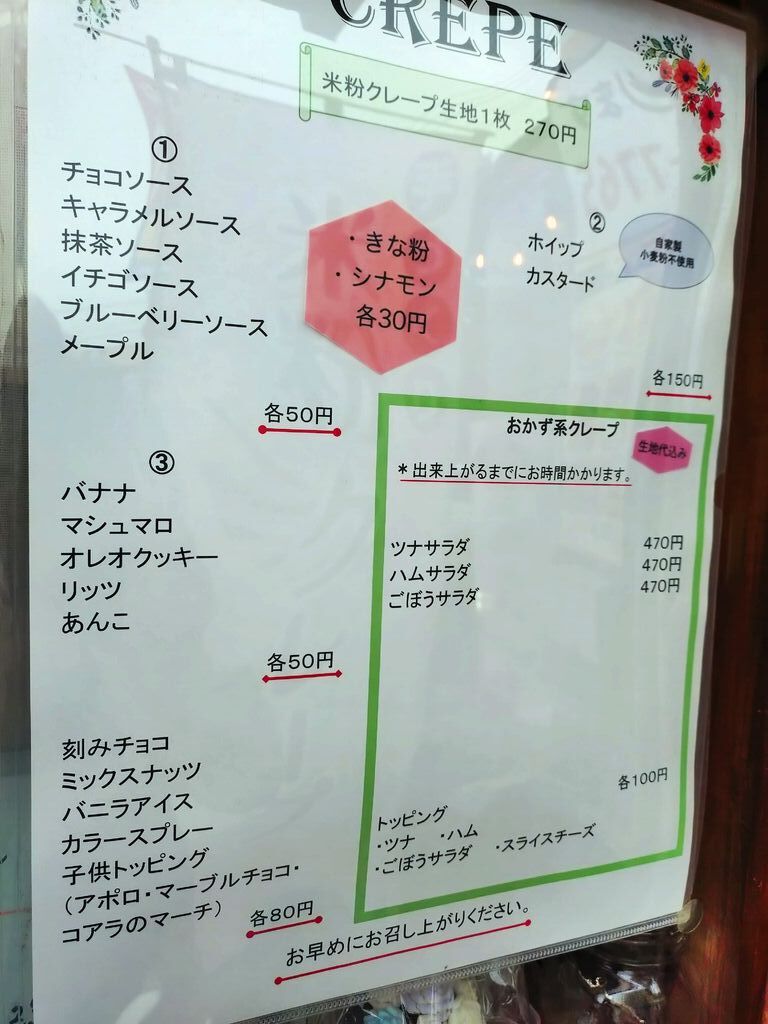 CREPE
米粉クレープ生地1枚 270円
①
チョコソース
キャラメルソース
抹茶ソース
イチゴソース
ブルーベリーソース
メープル
各50円
・きな粉
・シナモン
各30円
②
ホイップ
カスタード
自家製
小麦粉不使用
各150円
③
バナナ
マシュマロ
オレオクッキー
リッツ
あんこ
各50円
刻みチョコ
ミックスナッツ
バニラアイス
カラースプレー
子供トッピング
(アポロ・マーブルチョコ・
コアラのマーチ) 各80円
おかず系クレープ
生地代込み
*出来上がるまでにお時間かかります。
ツナサラダ 470円
ハムサラダ 470円
ごぼうサラダ 470円
各100円
トッピング
・ツナ ・ハム
・ごぼうサラダ ・スライスチーズ
お早めにお召し上がりください。